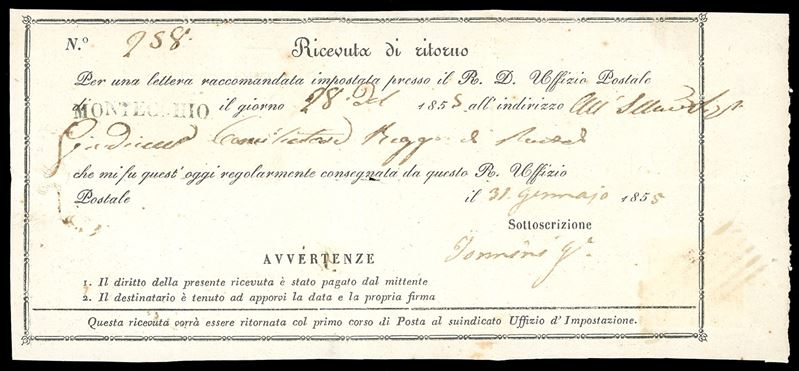 N.º 258.
Ricevuta di ritorno
Per una lettera raccomandata impostata presso il R. D. Uffizio Postale
di MONTECCHIO il giorno 28 1855 all' indirizzo
Reggio
che mi fu quest' oggi regolarmente consegnata da questo R. Uffizio
Postale il 31 Gennajo 1855
Sottoscrizione
AVVERTENZE
1. Il diritto della presente ricevuta è stato pagato dal mittente
2. Il destinatario è tenuto ad apporvi la data e la propria firma
Questa ricevuta vorrà essere ritornata col primo corso di Posta al suindicato Uffizio d' Impostazione.